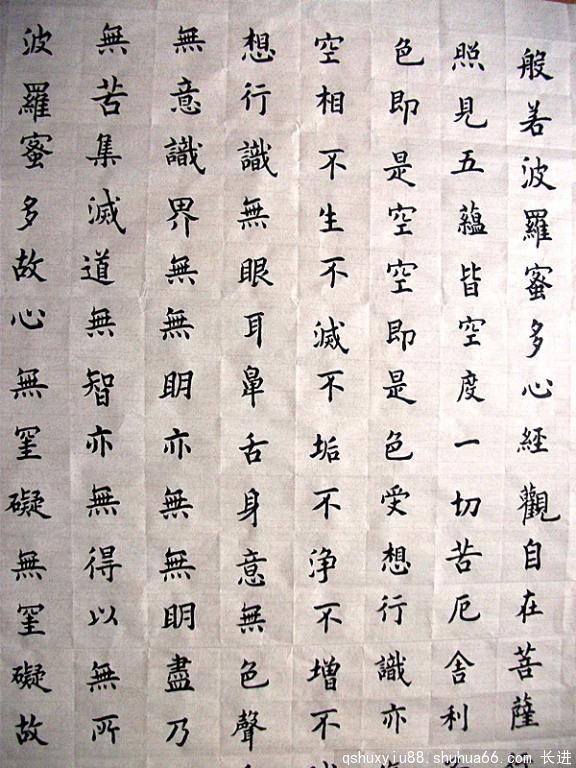 般若波羅蜜多心經觀自在菩薩
照見五蘊皆空度一切苦厄舍利
色即是空空即是色受想行識亦
空相不生不滅不垢不净不增不
想行識無眼耳鼻舌身意無色聲
無意識界無無明亦無無明盡乃
無苦集滅道無智亦無得以無所
波羅蜜多故心無罣礙無罣礙故
qshuxyju88.shuhua66.com 长进